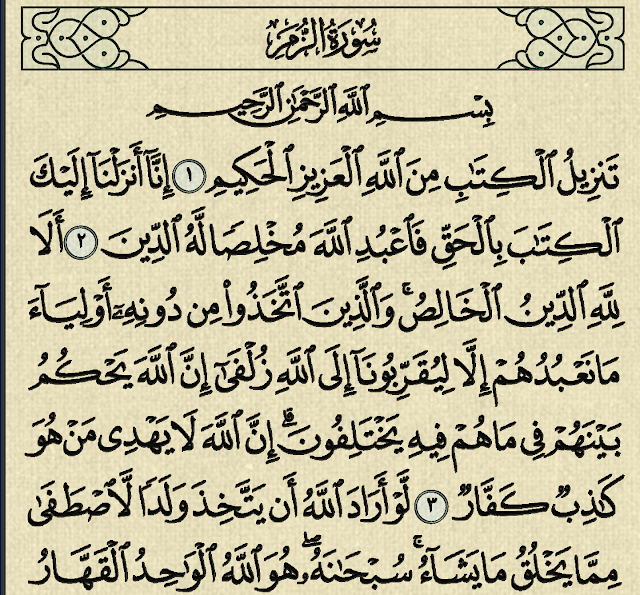 سُورَةُ الزُّمَرِ
بِسْمِ ٱللَّهِ ٱلرَّحْمَٰنِ ٱلرَّحِيمِ
تَنزِيلُ ٱلْكِتَٰبِ مِنَ ٱللَّهِ ٱلْعَزِيزِ ٱلْحَكِيمِ ١ إِنَّآ أَنزَلْنَآ إِلَيْكَ
ٱلْكِتَٰبَ بِٱلْحَقِّ فَٱعْبُدِ ٱللَّهَ مُخْلِصًا لَّهُ ٱلدِّينَ ٢ أَلَا
لِلَّهِ ٱلدِّينُ ٱلْخَالِصُ ۚ وَٱلَّذِينَ ٱتَّخَذُوا۟ مِن دُونِهِۦٓ أَوْلِيَآءَ
مَا نَعْبُدُهُمْ إِلَّا لِيُقَرِّبُونَآ إِلَى ٱللَّهِ زُلْفَىٰٓ إِنَّ ٱللَّهَ يَحْكُمُ
بَيْنَهُمْ فِى مَا هُمْ فِيهِ يَخْتَلِفُونَ ۗ إِنَّ ٱللَّهَ لَا يَهْدِى مَنْ هُوَ
كَٰذِبٌ كَفَّارٌ ٣ لَّوْ أَرَادَ ٱللَّهُ أَن يَتَّخِذَ وَلَدًا لَّٱصْطَفَىٰ
مِمَّا يَخْلُقُ مَا يَشَآءُ ۚ سُبْحَٰنَهُۥ ۖ هُوَ ٱللَّهُ ٱلْوَٰحِدُ ٱلْقَهَّارُ